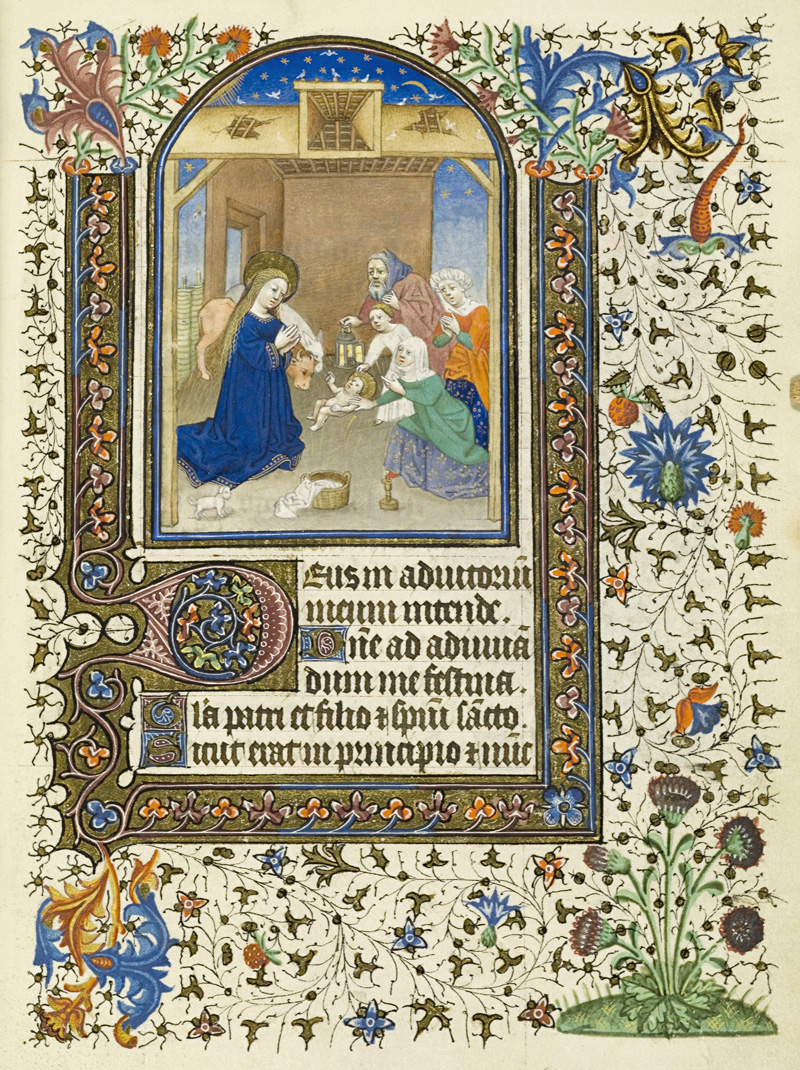 Deus in adiutoriū
meum intende.
Dn̄e ad adiuuā
dum me festina.
Gl'a patri et filio ⁊ sp̄iui sāncto.
Sicut erat in principio ⁊ nūc